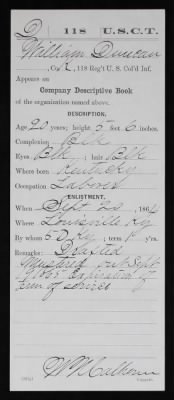 D | 118 | U.S.C.T.
William Duncan
Co. K, 118 Reg't U. S. Col'd Inf.
Appears on
Company Descriptive Book
of the organization named above.
DESCRIPTION.
Age 20 years; height 5 feet 6 inches.
Complexion Blk
Eyes Blk; hair Blk
Where born Kentucky
Occupation Laborer
ENLISTMENT.
When Sept 20, 1864
Where Louisville Ky
By whom 5 D Ky; term 1 y'rs.
Remarks: Drafted
Mustered out Sept
1865 Expiration of
term of service